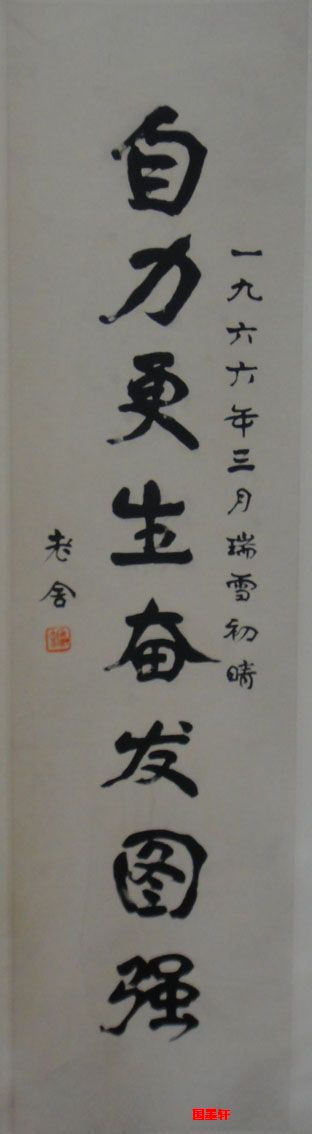 一九六六年三月瑞雪初晴
自力更生奋发图强
老舍
国墨轩